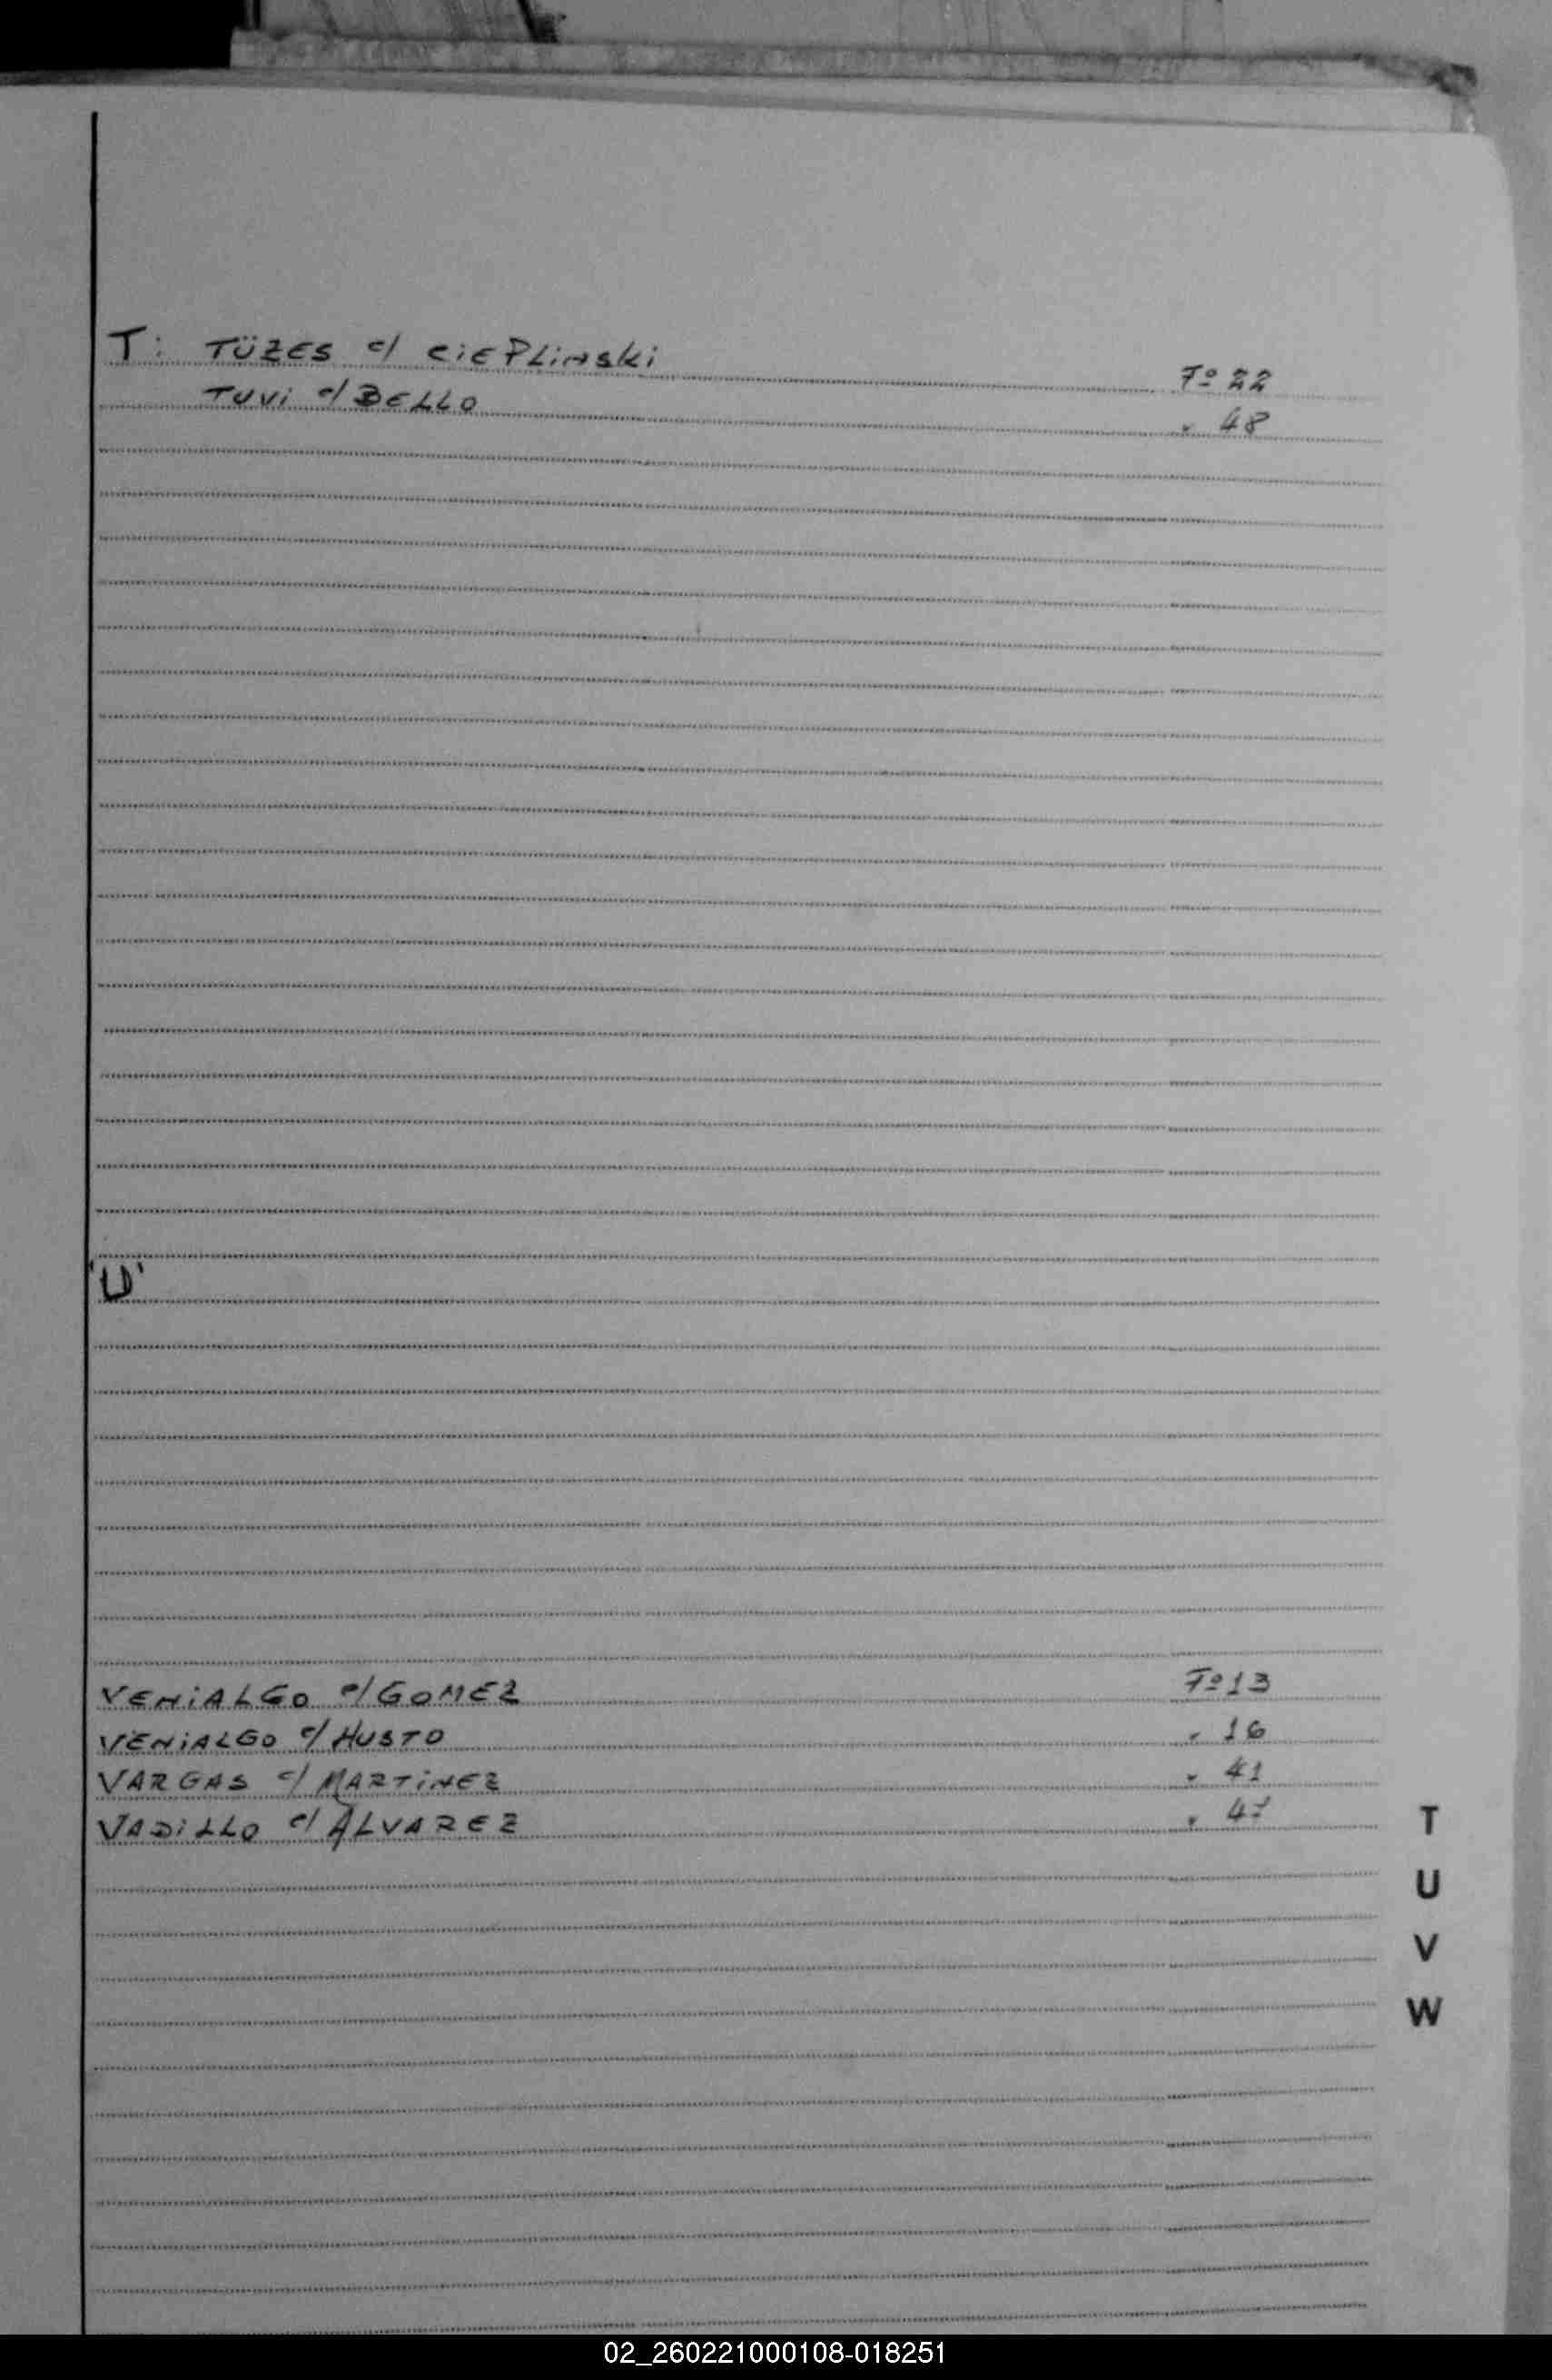 T: TÜZES c/ CiEPLiNSki Fº 22
TUVi c/ BELLO " 48
"U"
VENiALGO c/ GOMEZ Fº 13
VENiALGO c/ HUSTO " 16
VARGAS c/ MARTiNEZ " 41
VADiLLO c/ ALVAREZ "
T
U
V
W
02_260221000108-018251